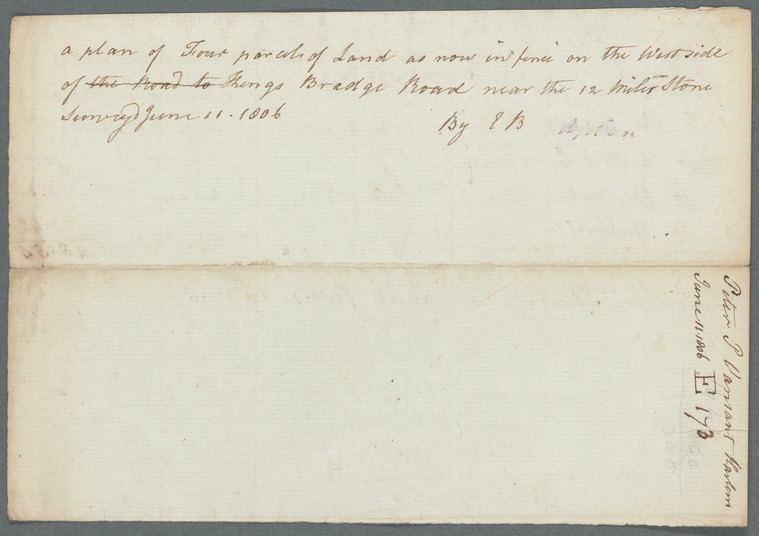 a plan of Four parcels of Land as now in fence on the West side
of the Road to Kings Bradge Road near the 12 Miles Stone
Surveyd June 11. 1806 By E B
Peter P Vansant Harlem
June 11. 1806 E 173